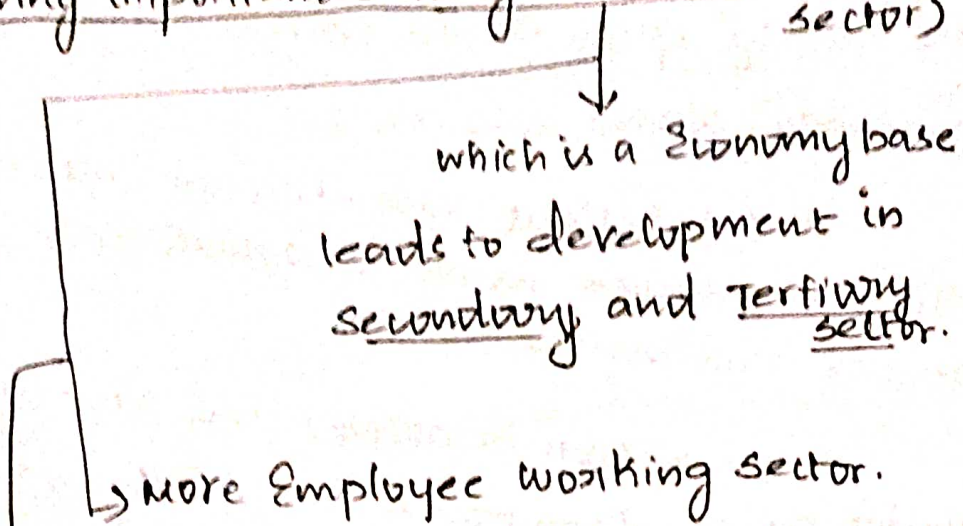 sector)
which is a Economy base
leads to development in
Secondary and Tertiary
sector.
More Employee working sector.